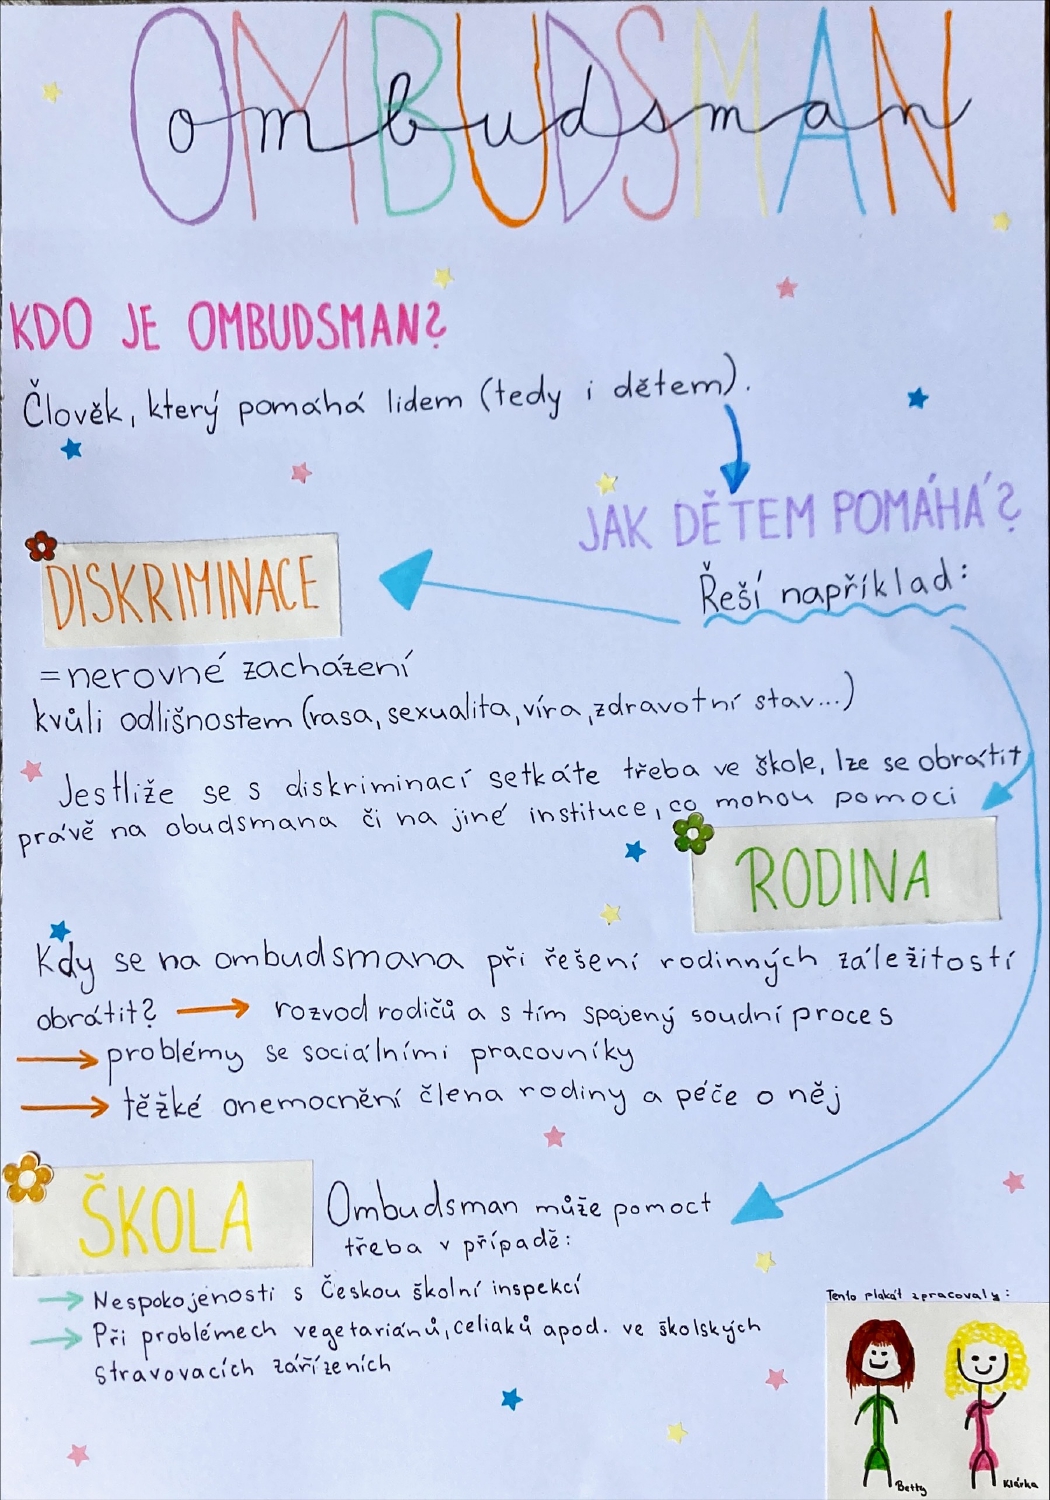 OMBUDSMAN
ombudsman
KDO JE OMBUDSMAN?
Člověk, který pomáhá lidem (tedy i dětem).
JAK DĚTEM POMÁHÁ?
Řeší například:
DISKRIMINACE
=nerovné zacházení
kvůli odlišnostem (rasa, sexualita, víra, zdravotní stav...)
Jestliže se s diskriminací setkáte třeba ve škole, lze se obrátit
právě na obudsmana či na jiné instituce, co mohou pomoci
RODINA
Kdy se na ombudsmana při řešení rodinných záležitostí
obrátit? → rozvod rodičů a s tím spojený soudní proces
→ problémy se sociálními pracovníky
→ těžké onemocnění člena rodiny a péče o něj
ŠKOLA
Ombudsman může pomoct
třeba v případě:
→ Nespokojenosti s Českou školní inspekcí
→ Při problémech vegetariánů, celiaků apod. ve školských
stravovacích zařízeních
Tento plakát zpracovaly:
Betty
Klárka